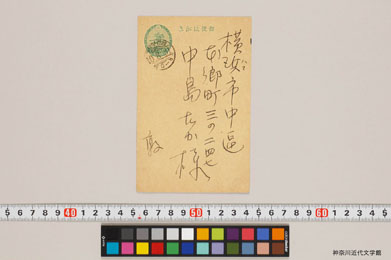 きがは便郵
横浜市中区
本郷町三ノ二四七
中島たか様
敦
5 6 7 8 9 40 1 2 3 4 5 6 7 8 9 50 1 2 3 4 5 6 7 8 9 60 1 2 3 4 5
神奈川近代文学館